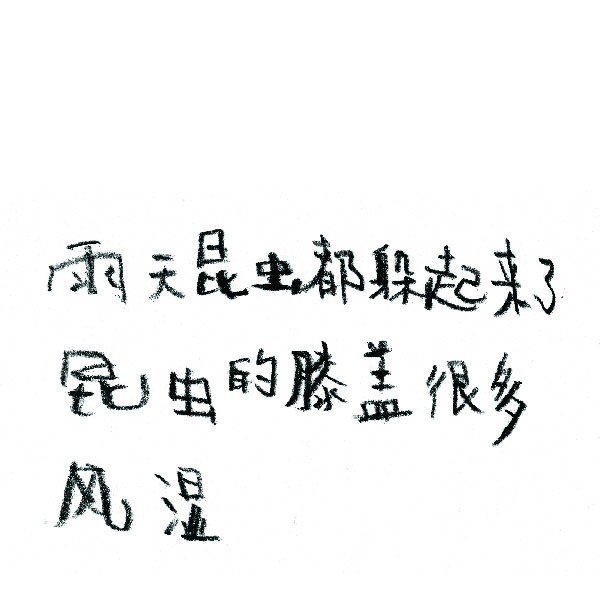 雨天昆虫都躲起来了
昆虫的膝盖很多
风湿